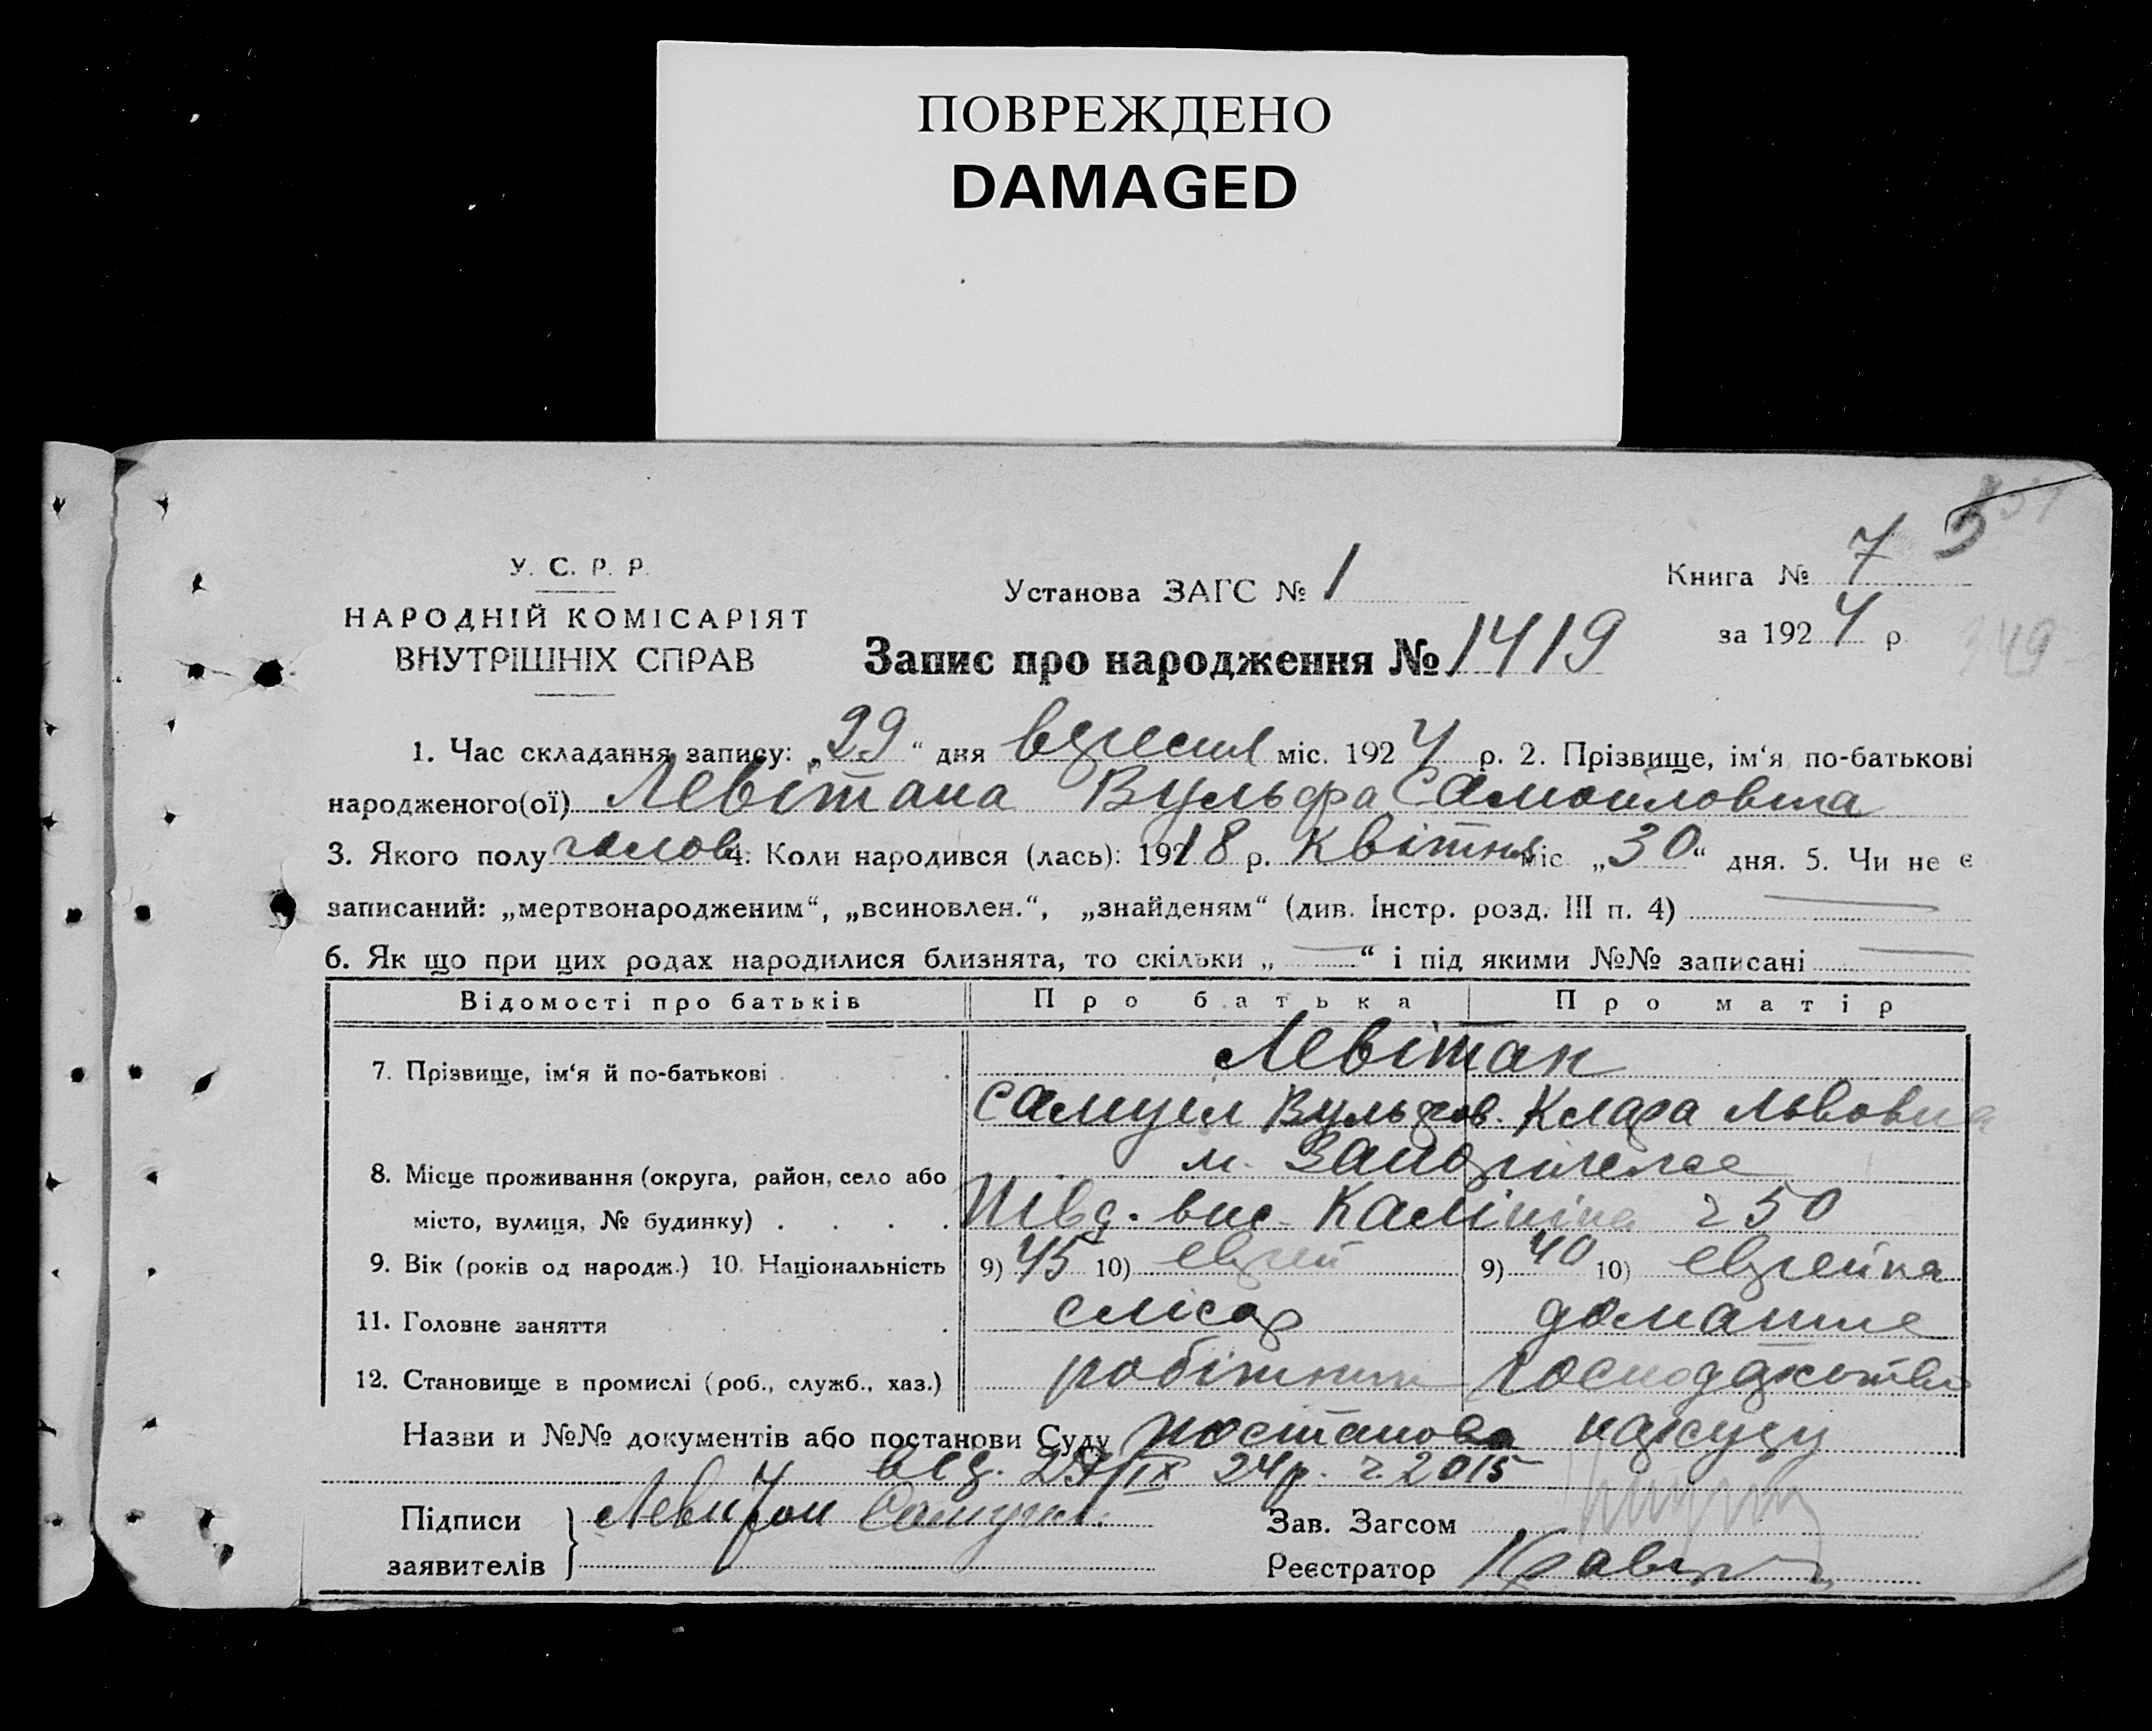 ПОВРЕЖДЕНО
DAMAGED
У. С. Р. Р.
НАРОДНІЙ КОМІСАРІЯТ
ВНУТРІШНІХ СПРАВ
Установа ЗАГС № 1
Книга № 7
за 1924 р
349
Запис про народження № 1419
1. Час складання запису: „29“ дня вересня міс. 1924 р. 2. Прізвище, ім‘я по-батькові
народженого(ої) Левітана Вульфа Самойловича
3. Якого полу чолов 4. Коли народився (лась): 1918 р. Квітня міс „30“ дня. 5. Чи не є
записаний: „мертвонародженим“, „всиновлен.“, „знайденям“ (див. Інстр. розд. III п. 4)
6. Як що при цих родах народилися близнята, то скільки „ “ і під якими №№ записані
Відомості про батьків Про батька Про матір
7. Прізвище, ім‘я й по-батькові Левітан
Самуил Вульфов. Клара Львовна
8. Місце проживання (округа, район, село або м. Запоріжжє
місто, вулиця, № будинку) Півд. вис. Калініна ч 50
9. Вік (років од народж.) 10. Національність 9) 45 10) еврей 9) 40 10) еврейка
11. Головне заняття слісар домашнє
12. Становище в промислі (роб., служб., хаз.) робітник господарство
Назви и №№ документів або постанови Суду постанова нарсуду
від. 29/IX 24р. ч. 2015
Підписи Левитан Самуил.
заявителів
Зав. Загсом
Реєстратор